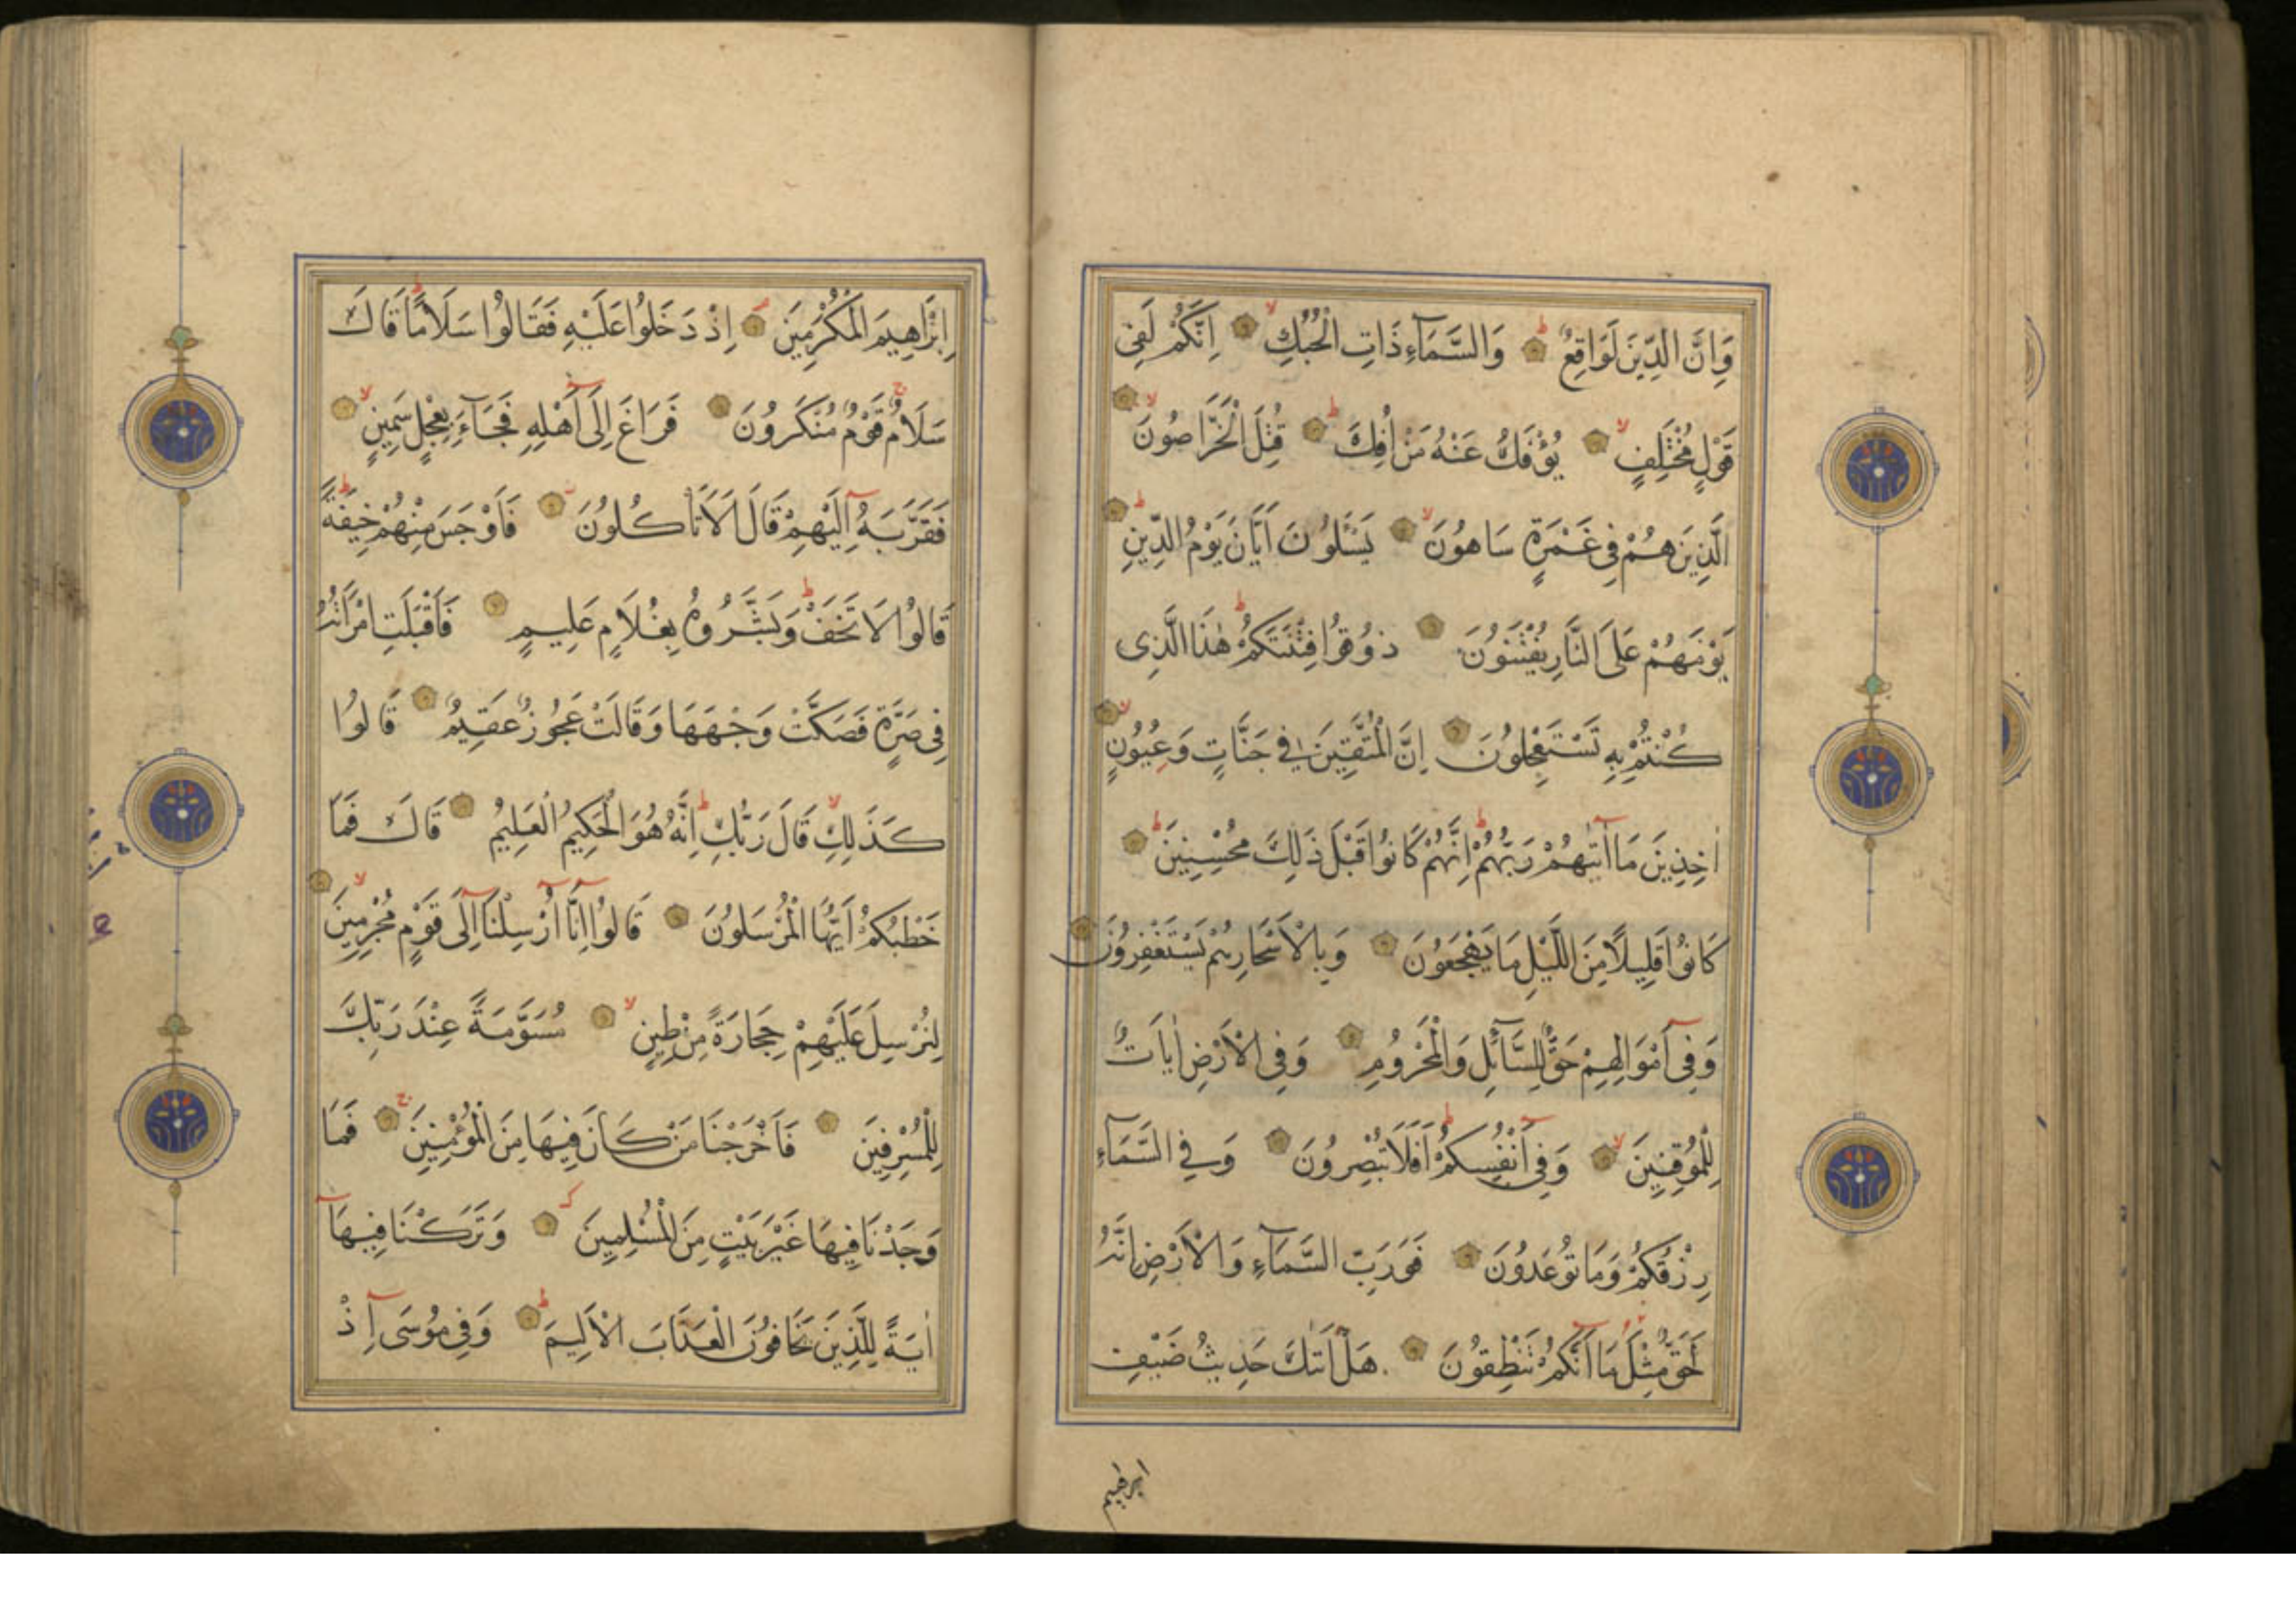 وَاِنَّ الدِّينَ لَوَاقِعٌ وَالسَّمَآءِ ذَاتِ الْحُبُكِ اِنَّكُمْ لَفِى
قَوْلٍ مُخْتَلِفٍ يُؤْفَكُ عَنْهُ مَنْ اُفِكَ قُتِلَ الْخَرَّاصُونَ
الَّذِينَ هُمْ فِى غَمْرَةٍ سَاهُونَ يَسْئَلُونَ اَيَّانَ يَوْمُ الدِّينِ
يَوْمَهُمْ عَلَى النَّارِ يُفْتَنُونَ ذُوقُوا فِتْنَتَكُمْ هٰذَا الَّذِى
كُنْتُمْ بِهِ تَسْتَعْجِلُونَ اِنَّ الْمُتَّقِينَ فِى جَنَّاتٍ وَعُيُونٍ
اٰخِذِينَ مَا اٰتٰيهُمْ رَبُّهُمْ اِنَّهُمْ كَانُوا قَبْلَ ذَلِكَ مُحْسِنِينَ
كَانُوا قَلِيلًا مِنَ اللَّيْلِ مَا يَهْجَعُونَ وَبِالْاَسْحَارِ هُمْ يَسْتَغْفِرُونَ
وَفِى اَمْوَالِهِمْ حَقٌّ لِلسَّآئِلِ وَالْمَحْرُومِ وَفِى الْاَرْضِ اٰيَاتٌ
لِلْمُوقِنِينَ وَفِى اَنْفُسِكُمْ اَفَلَا تُبْصِرُونَ وَفِى السَّمَآءِ
رِزْقُكُمْ وَمَا تُوعَدُونَ فَوَرَبِّ السَّمَآءِ وَالْاَرْضِ اِنَّهُ
لَحَقٌّ مِثْلَ مَا اَنَّكُمْ تَنْطِقُونَ هَلْ اَتٰكَ حَدِيثُ ضَيْفِ
ابرهيم
اِبْرَاهِيمَ الْمُكْرَمِينَ اِذْ دَخَلُوا عَلَيْهِ فَقَالُوا سَلَامًا قَالَ
سَلَامٌ قَوْمٌ مُنْكَرُونَ فَرَاغَ اِلَى اَهْلِهِ فَجَآءَ بِعِجْلٍ سَمِينٍ
فَقَرَّبَهُ اِلَيْهِمْ قَالَ اَلَا تَاْكُلُونَ فَاَوْجَسَ مِنْهُمْ خِيفَةً
قَالُوا لَا تَخَفْ وَبَشَّرُوهُ بِغُلَامٍ عَلِيمٍ فَاَقْبَلَتِ امْرَاَتُهُ
فِى صَرَّةٍ فَصَكَّتْ وَجْهَهَا وَقَالَتْ عَجُوزٌ عَقِيمٌ قَالُوا
كَذَلِكِ قَالَ رَبُّكِ اِنَّهُ هُوَ الْحَكِيمُ الْعَلِيمُ قَالَ فَمَا
خَطْبُكُمْ اَيُّهَا الْمُرْسَلُونَ قَالُوا اِنَّا اُرْسِلْنَا اِلَى قَوْمٍ مُجْرِمِينَ
لِنُرْسِلَ عَلَيْهِمْ حِجَارَةً مِنْ طِينٍ مُسَوَّمَةً عِنْدَ رَبِّكَ
لِلْمُسْرِفِينَ فَاَخْرَجْنَا مَنْ كَانَ فِيهَا مِنَ الْمُؤْمِنِينَ فَمَا
وَجَدْنَا فِيهَا غَيْرَ بَيْتٍ مِنَ الْمُسْلِمِينَ وَتَرَكْنَا فِيهَا
اٰيَةً لِلَّذِينَ يَخَافُونَ الْعَذَابَ الْاَلِيمَ وَفِى مُوسَى اِذْ